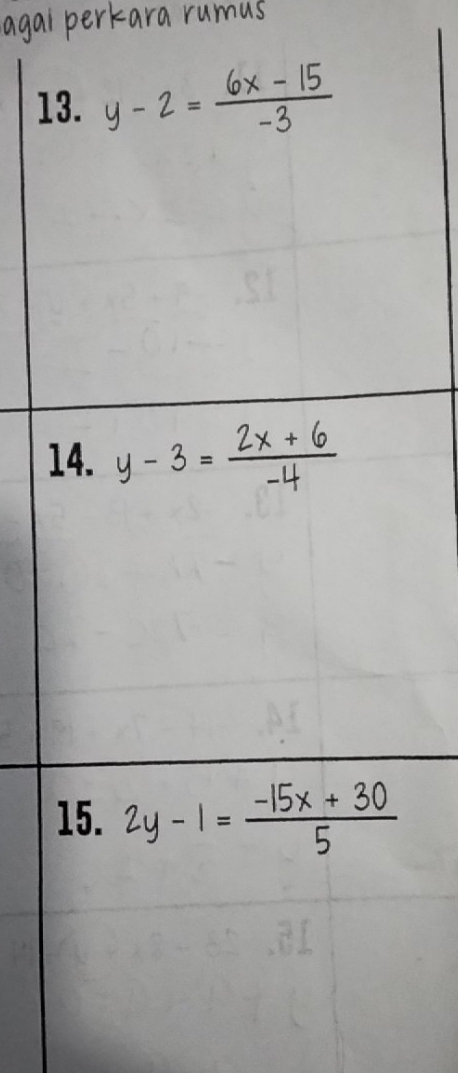 agai perkara rumus
13. y - 2 = \frac{6x - 15}{-3}
14. y - 3 = \frac{2x + 6}{-4}
15. 2y - 1 = \frac{-15x + 30}{5}